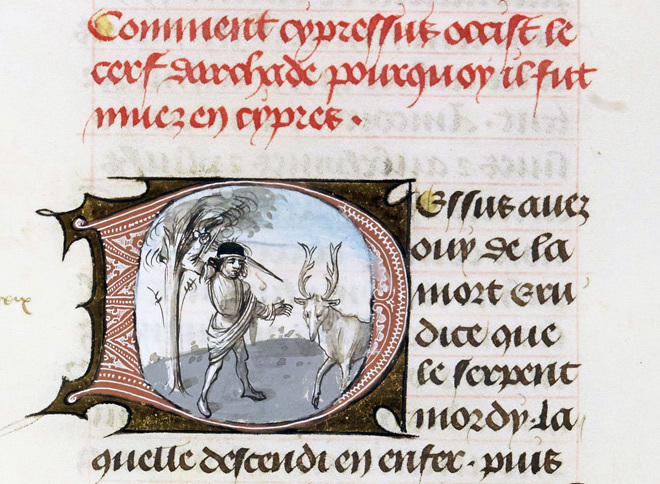 Comment cypressus occist le
cerf darchade pourquoy il fut
muez en cypres .
Dessus auez
ouy de la
mort Eru
dice que
le serpent
mordy . la
quelle descendi en enfer . puis